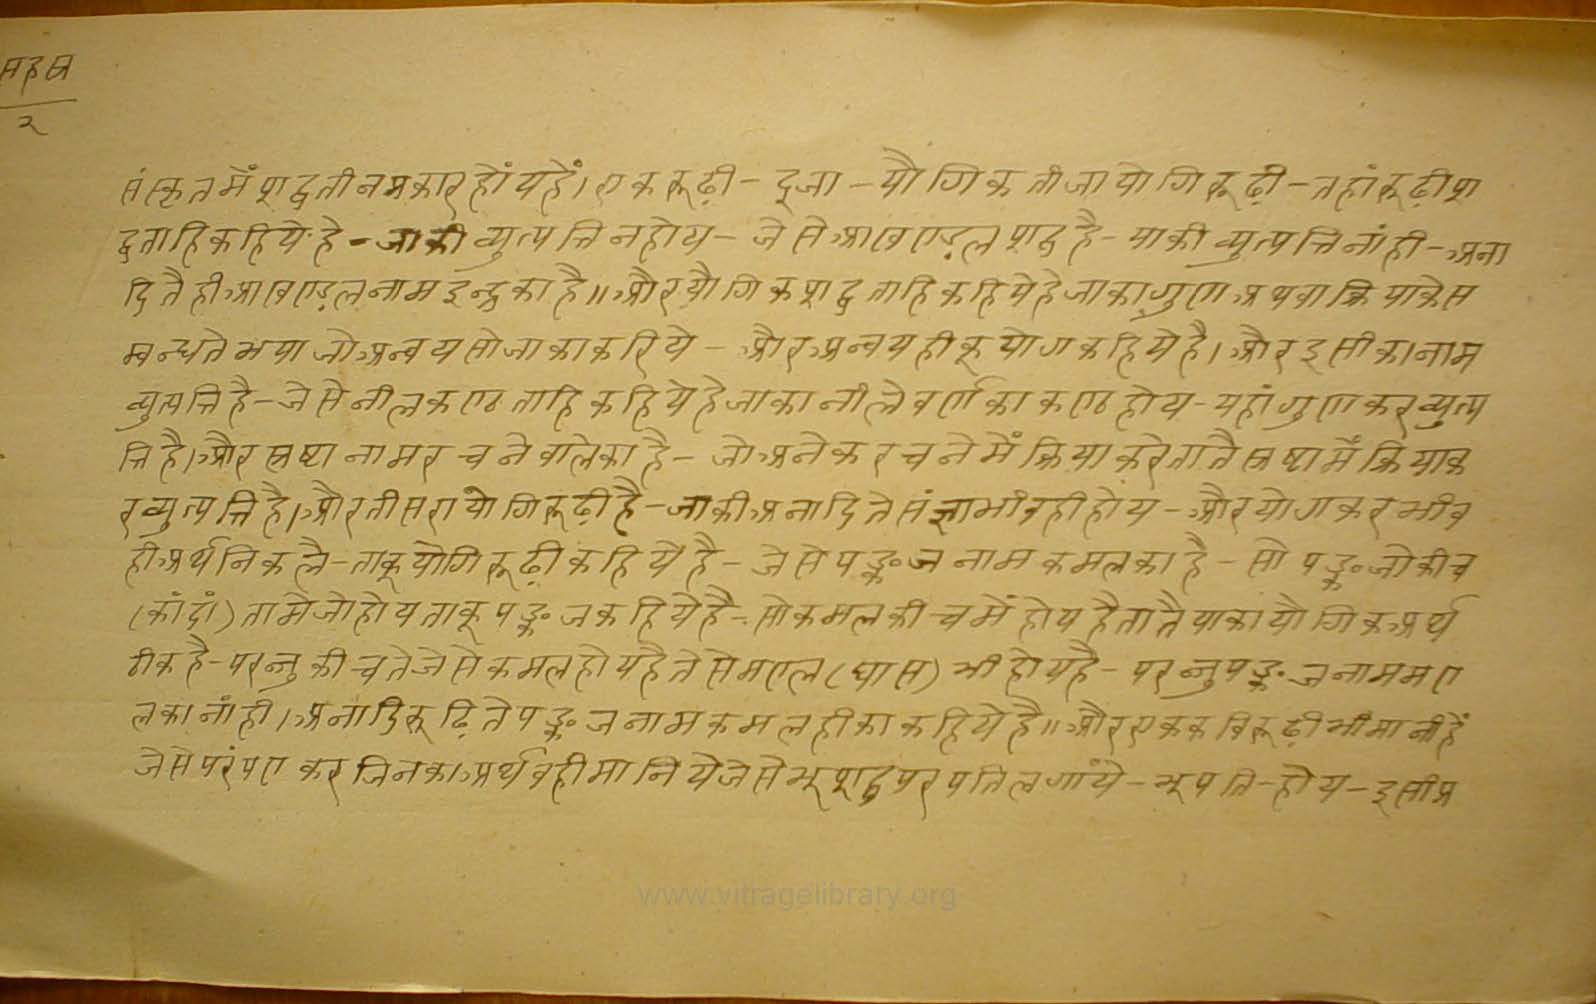 सहस्र
२
संस्कृतमें शब्द तीन प्रकार होंय हें। एक रूढ़ी - दूजा - यौगिक तीजा योगिरूढ़ी - तहां रूढ़ी श
ब्द ताहि कहिये हे - जाकी व्युत्पत्ति न होय - जेसे आखण्ड़ल शब्द है - याकी व्युत्पत्ति नांही - अना
दितै ही आखण्ड़ल नाम इन्द्र का है॥ और यौगिक शब्द ताहि कहिये हे जाका गुण अथवा क्रियाके स
म्बन्धते भया जो अन्वय सो जाका करिये - और अन्वय हीकू योग कहिये है। और इसी का नाम
व्युत्पत्ति है - जेसे नीलकण्ठ ताहि कहिये हे जाका नीले वर्ण का कण्ठ होय - यहां गुण कर व्युत्प
त्ति है। और स्रष्टा नाम रचने वालेका है - जो अनेक रचनेमें क्रिया करे तातै स्रष्टामें क्रिया क
र व्युत्पत्ति है। और तीसरा योगिरूढ़ी है - जाकी अनादिते संज्ञा भी वही होय - और योग कर भी व
ही अर्थ निकलै - ताकू योगिरूढ़ी कहिये है - जेसे पङ्कज नाम कमल का है - सो पङ्क जो कीच
(कांदां) तामे जो होय ताकू पङ्कज कहिये है - सो कमल कीचमें होय है तातै याका यौगिक अर्थ
ठीक है - परन्तु कीचते जेसे कमल होय है तेसे मएल (घास) भी होय है - परन्तु पङ्कज नाम मए
ल का नांही। अनादि रूढ़िते पङ्कज नाम कमल ही का कहिये है॥ और एक कविरूढ़ी भी मानी हें
जेसे परंपरा कर जिनका अर्थ वही मानिये जेसे भू शब्द पर पति लगांये - भूपति - होय - इसी प्र
www.vitragelibrary.org